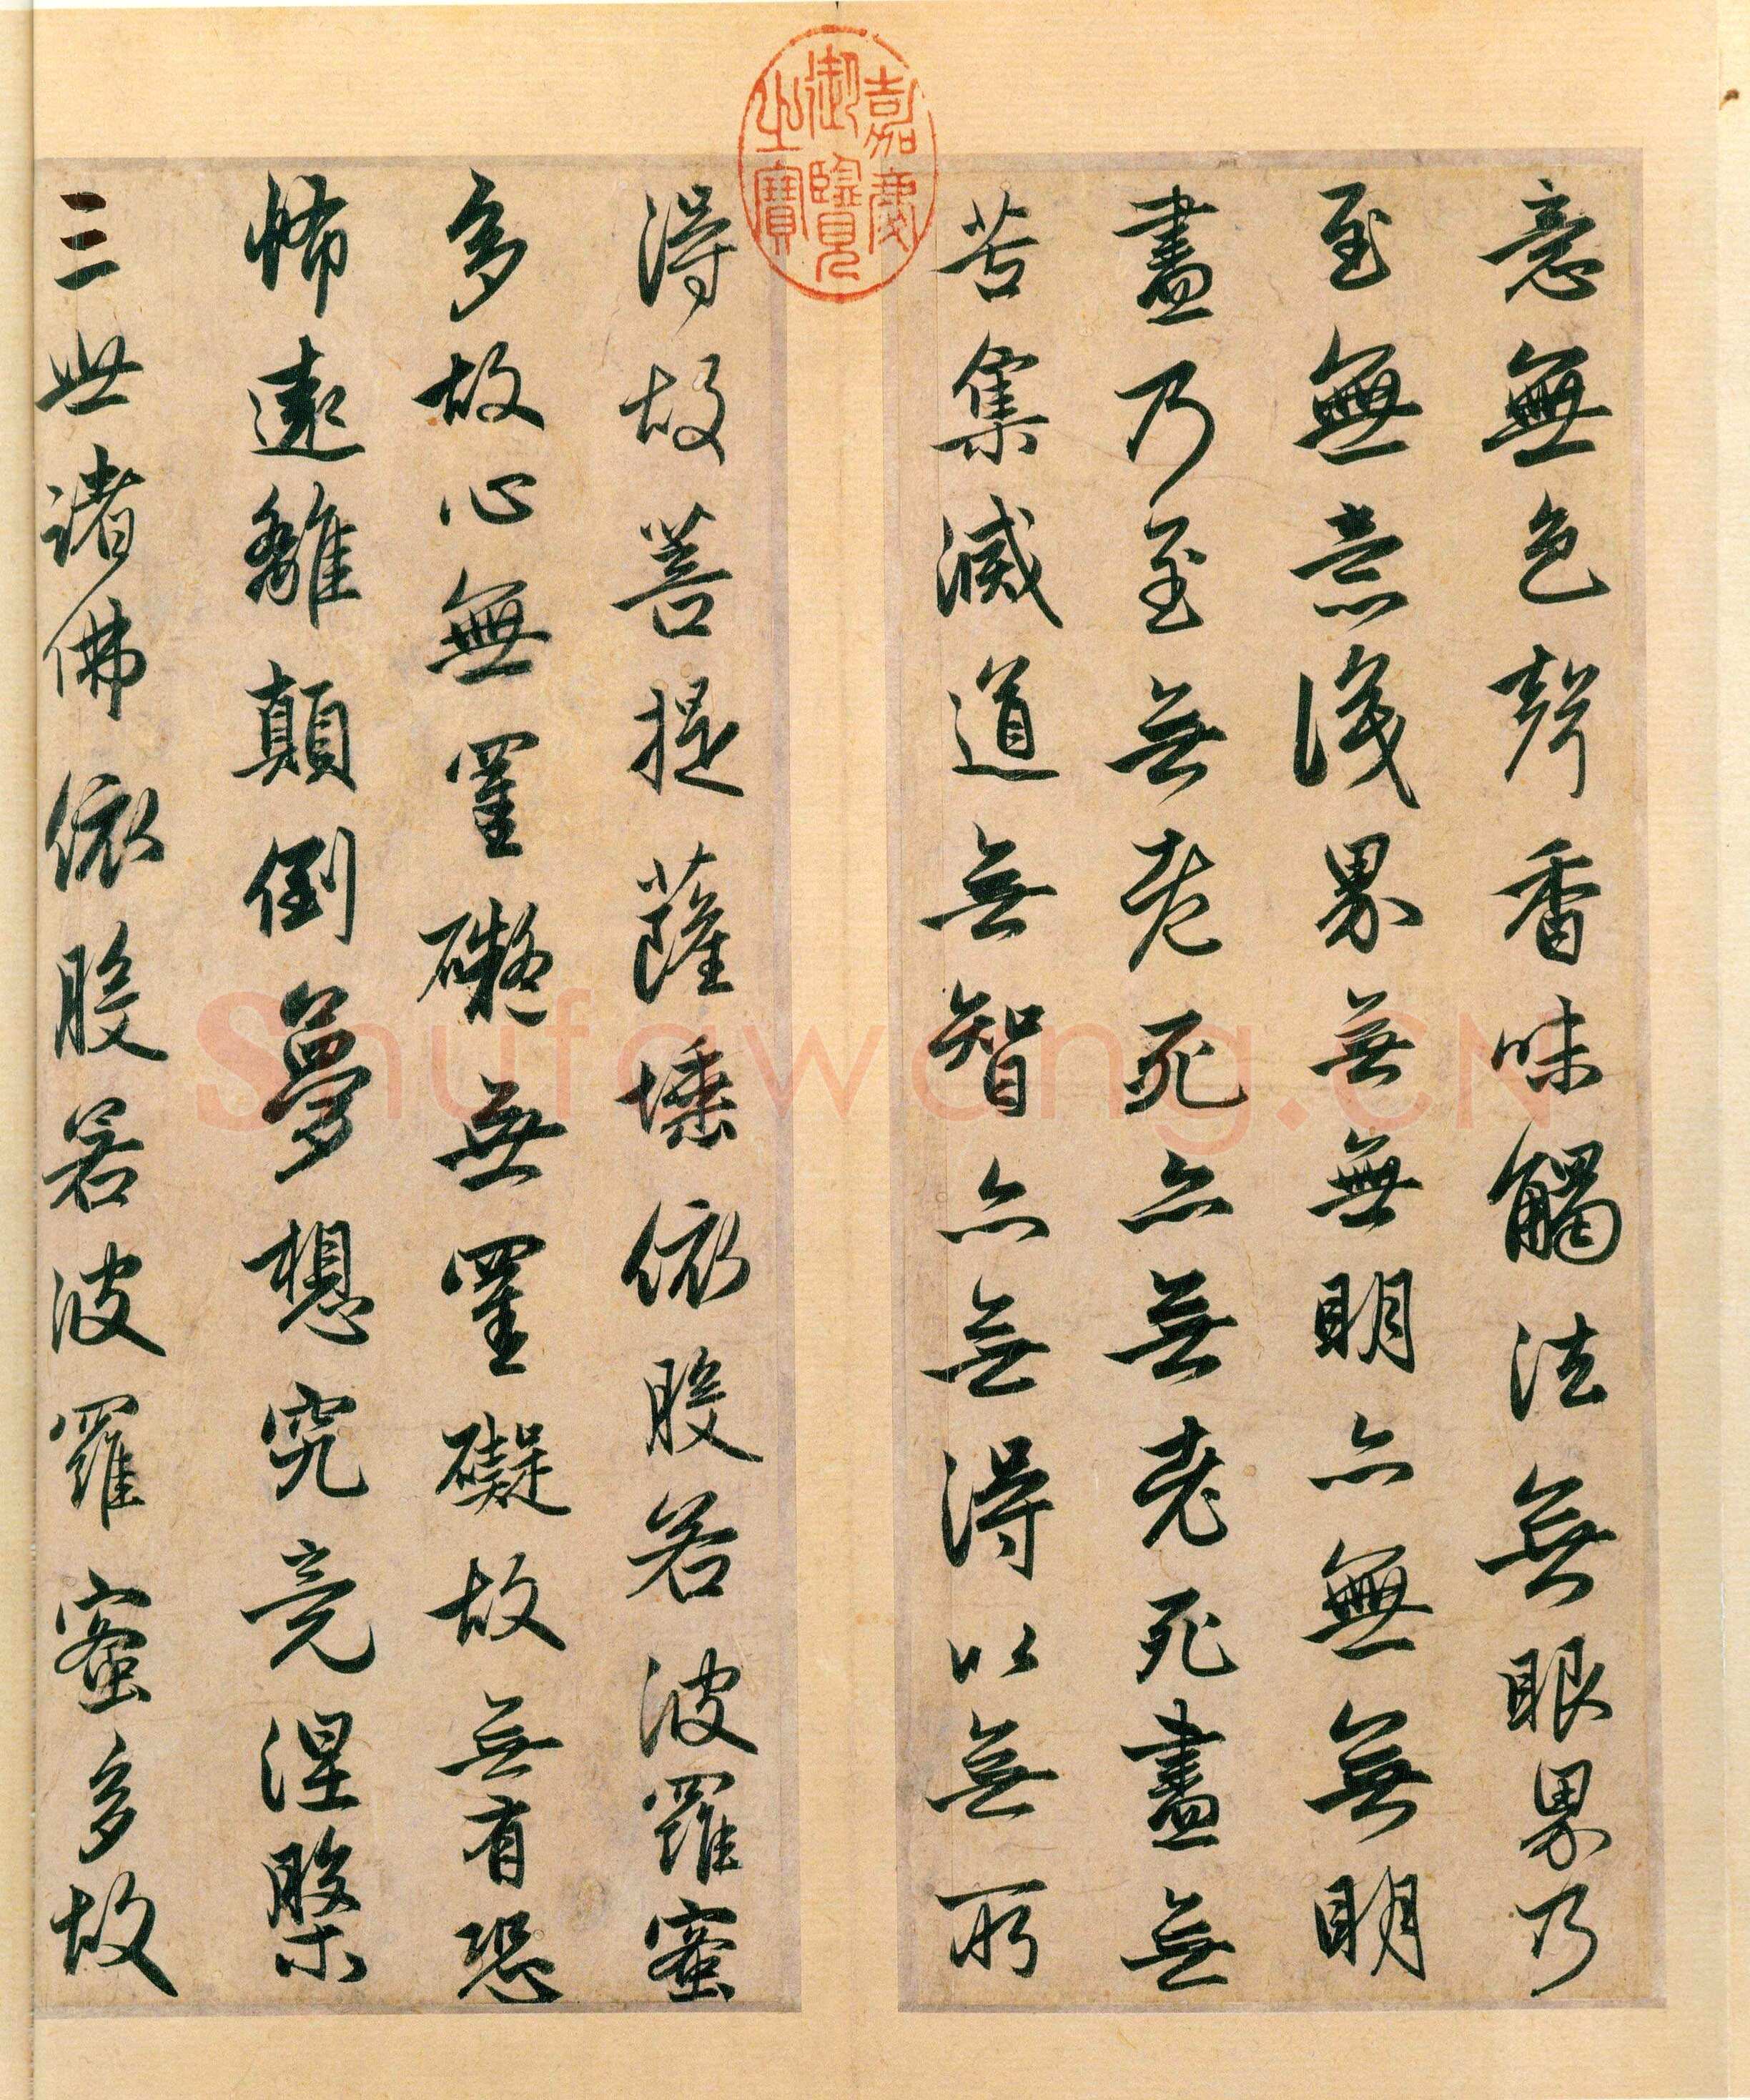 意無色聲香味觸法無眼界乃
至無意識界無無明亦無無明
盡乃至無老死亦無老死盡無
苦集滅道無智亦無得以無所
得故菩提薩埵依般若波羅蜜
多故心無罣礙無罣礙故無有恐
怖遠離顛倒夢想究竟涅槃
三世諸佛依般若波羅蜜多故
嘉慶
御覽
之寶
Shufawang.CN